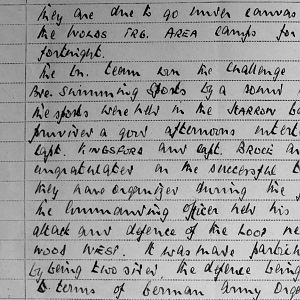 they are due to go under canvas
the WOLDS TRG. AREA camps for
fortnight.
The Bn. team won the Challenge
Bde. Swimming Sports by a
the sports were held in the YARROW
provided a good afternoons
Capt. KINGSFORD and Capt. BROCK
congratulated on the successful
they have organized during the
The Commanding Officer held his
attack and defence of the LOOP
WOOD WEST. It was made
by being two sided, the defence being
terms of German Army